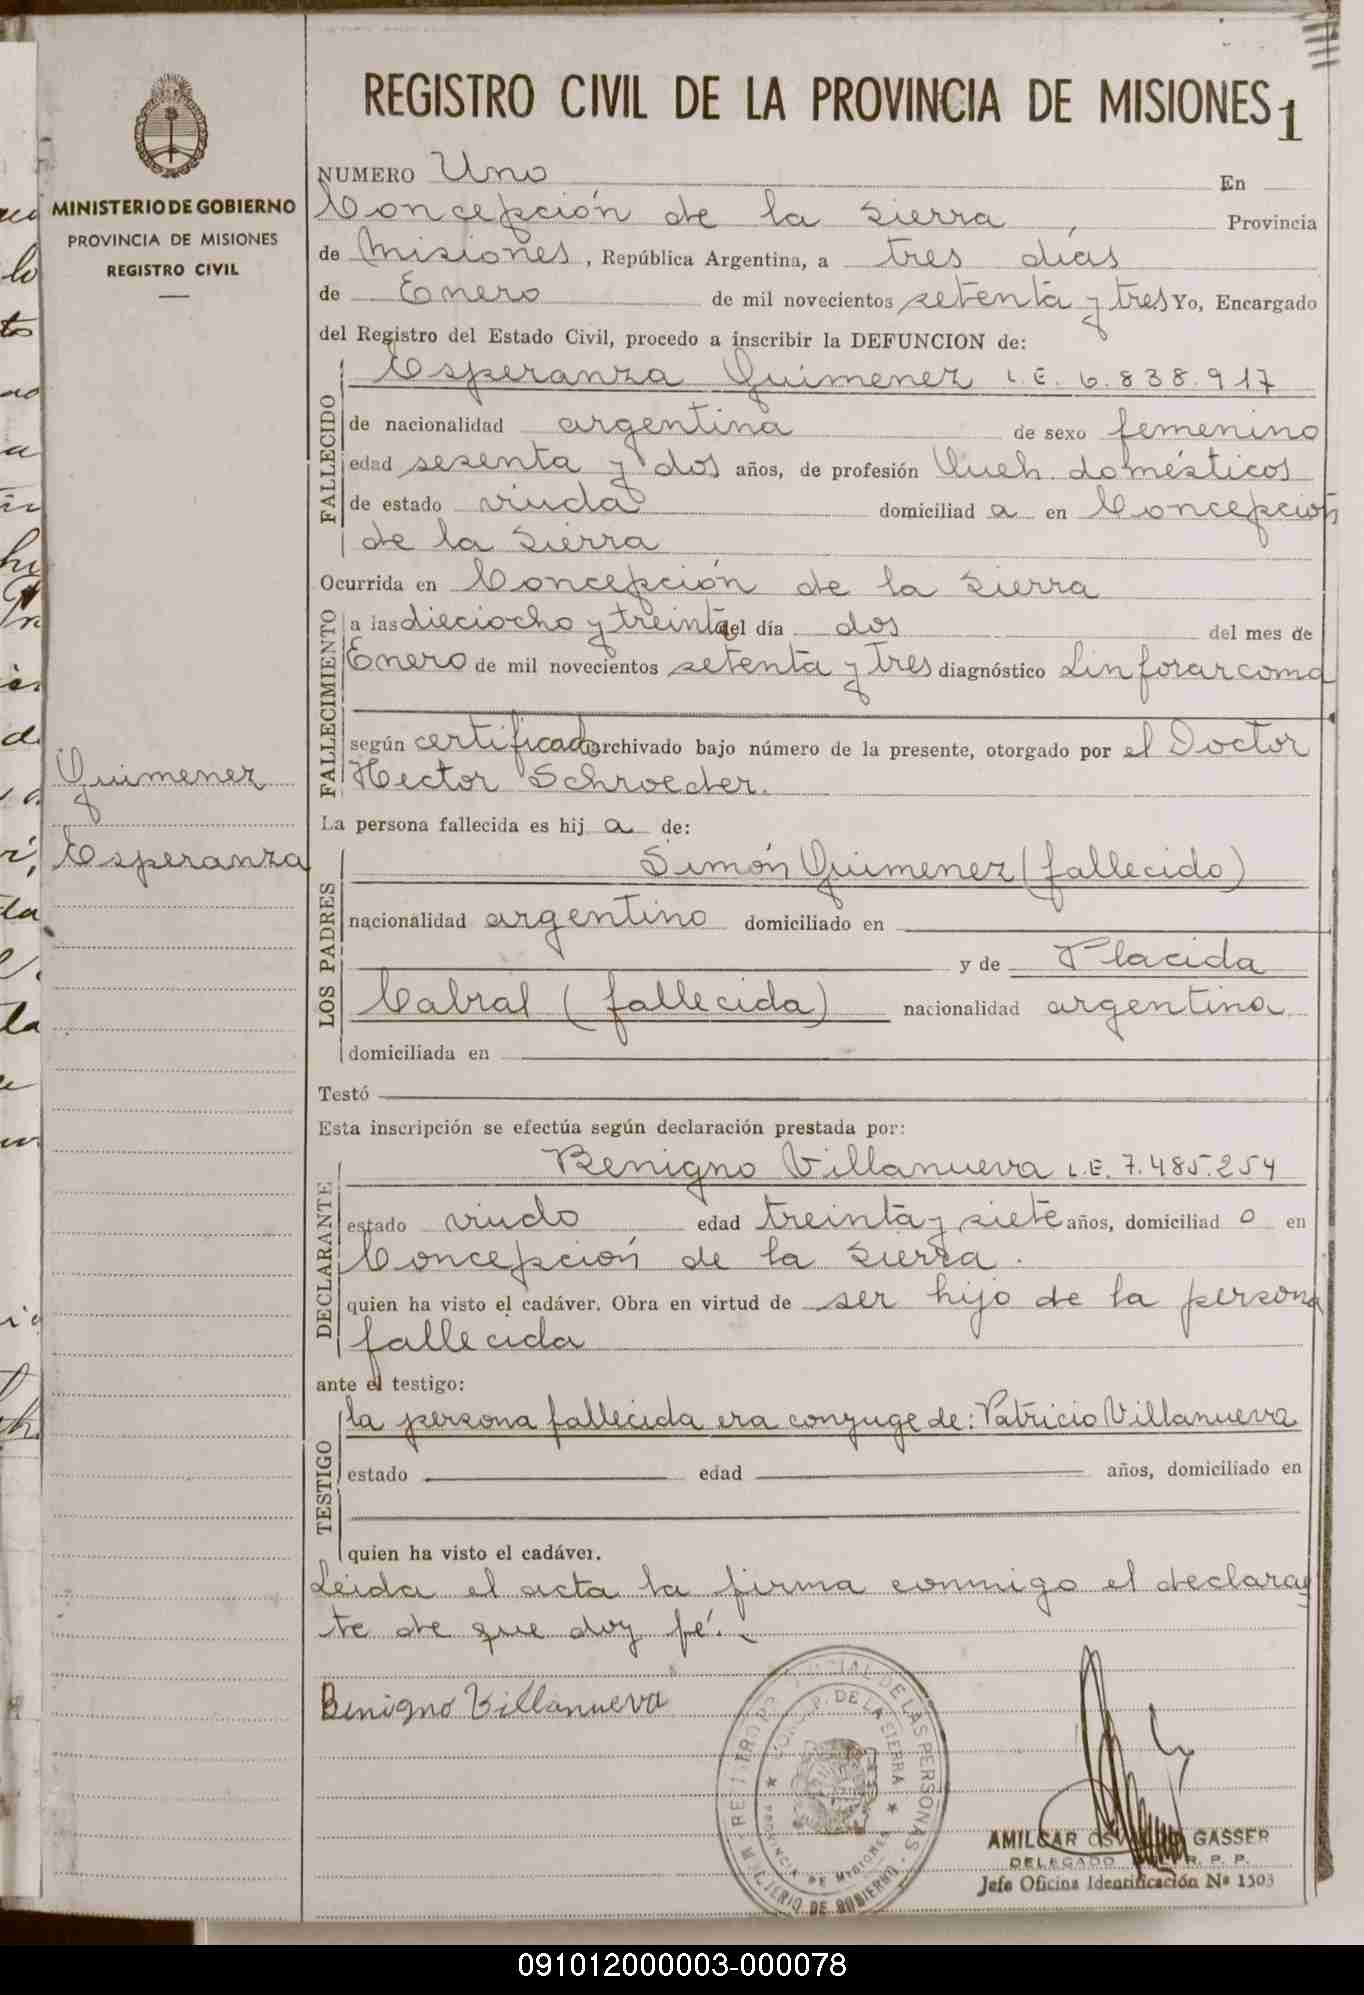 REGISTRO CIVIL DE LA PROVINCIA DE MISIONES 1
MINISTERIO DE GOBIERNO
PROVINCIA DE MISIONES
REGISTRO CIVIL
NUMERO Uno En
Concepción de la Sierra, Provincia
de Misiones, República Argentina, a tres días
de Enero de mil novecientos setenta y tres Yo, Encargado
del Registro del Estado Civil, procedo a inscribir la DEFUNCION de:
FALLECIDO
Esperanza Guimenez L.E. 6.838.917
de nacionalidad argentina de sexo femenino
edad sesenta y dos años, de profesión Queh. domésticos
de estado viuda domiciliad a en Concepción
de la Sierra
Ocurrida en Concepción de la Sierra
FALLECIMIENTO
a las dieciocho y treinta del día dos del mes de
Enero de mil novecientos setenta y tres diagnóstico Linfosarcoma
según certificado archivado bajo número de la presente, otorgado por el Doctor
Hector Schroeder.
Guimenez
Esperanza
La persona fallecida es hij a de:
LOS PADRES
Simón Guimenez (fallecido)
nacionalidad argentino domiciliado en
y de Placida
Cabral (fallecida) nacionalidad argentina
domiciliada en
Testó
Esta inscripción se efectúa según declaración prestada por:
DECLARANTE
Benigno Villanueva L.E. 7.485.254
estado viudo edad treinta y siete años, domiciliad o en
Concepción de la Sierra.
quien ha visto el cadáver. Obra en virtud de ser hijo de la persona
fallecida
ante el testigo:
TESTIGO
la persona fallecida era conyuge de: Patricio Villanueva
estado edad años, domiciliado en
quien ha visto el cadáver.
Leida el acta la firma conmigo el declaran
te de que doy fé.
Benigno Villanueva
DE LAS PERSONAS
DE LA SIERRA
PROVINCIA DE MISIONES
MINISTERIO DE GOBIERNO
AMILCAR GASSER
DELEGADO R. P. P.
Jefe Oficina Identificación Nº 1503
091012000003-000078